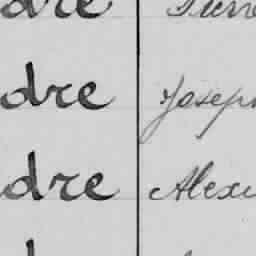 dre
dre Joseph
dre Alexi